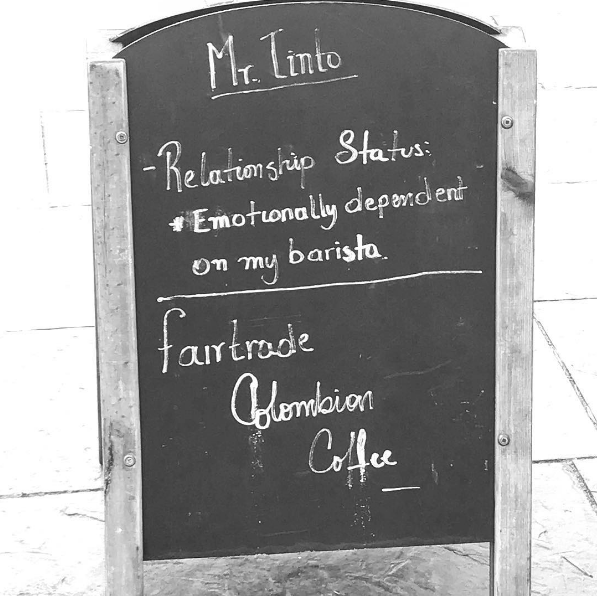 Mr. Tinto
- Relationship Status:
* Emotionally dependent
on my barista.
fairtrade
Colombian
Coffee